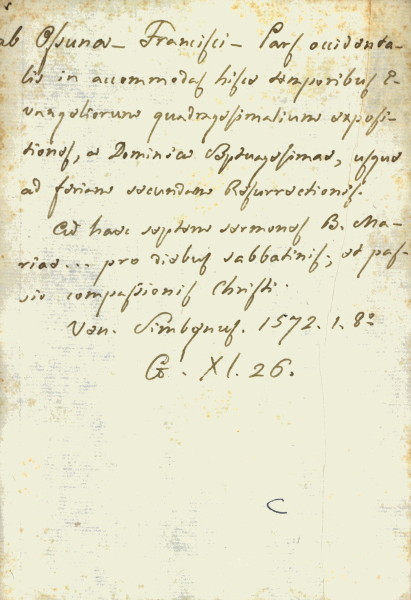 ab Ossuna – Francisci – Pars occidenta-
lis in accommodas hisce temporibus E-
vangeliorum quadragesimalium exposi-
tiones, a Dominica Septuagesimae, usque
ad feriam secundam Resurrectionis.
Ad haec septem sermones B. Ma-
riae... pro diebus sabbatinis; et pas-
sio compassionis Christi.
Ven. Simbenus. 1572. 1. 8º
G. XI. 26.
C